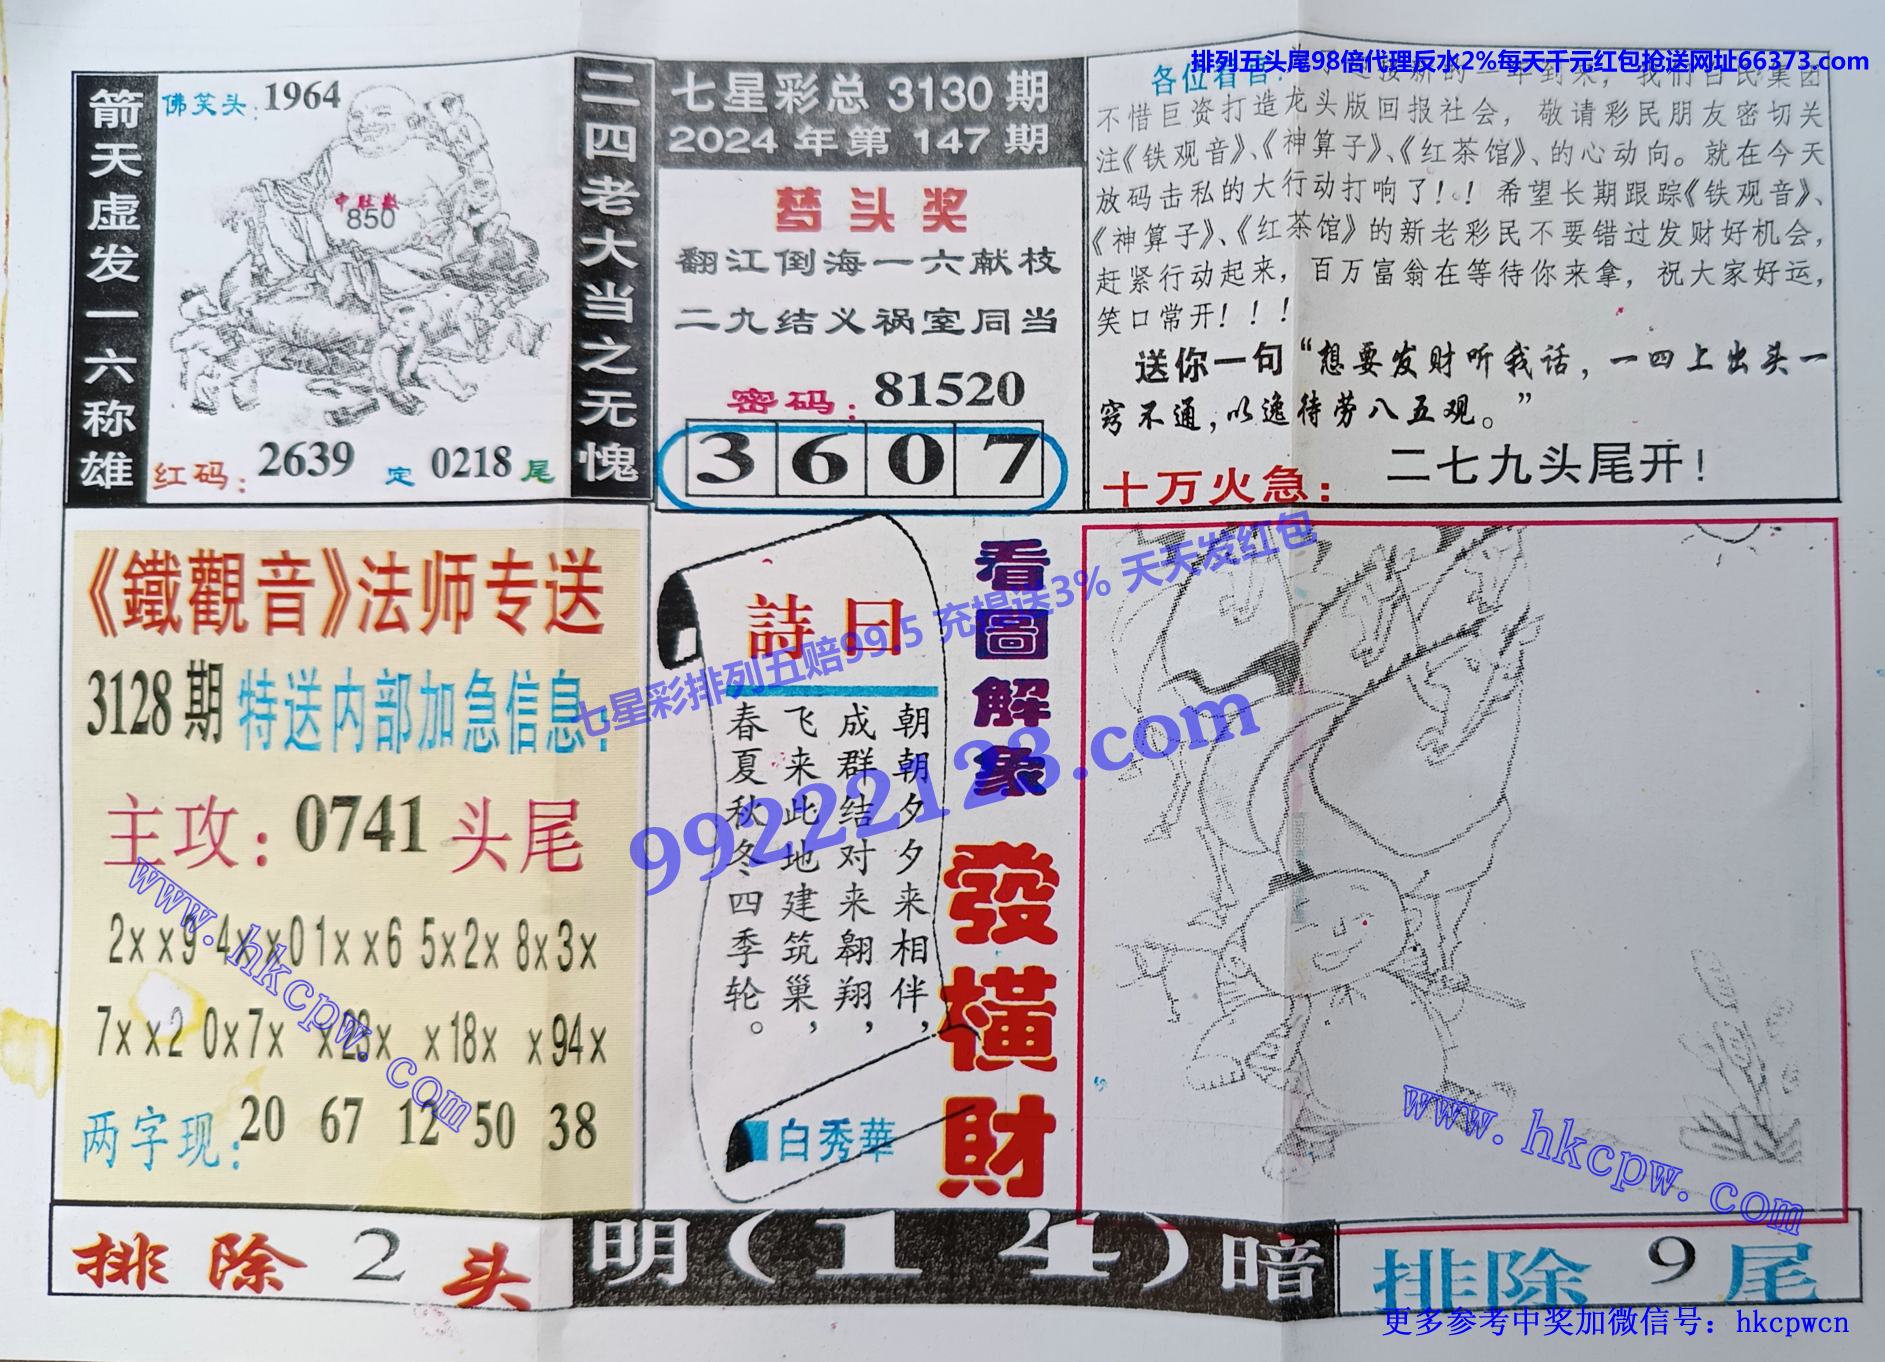 排列五头尾98倍代理反水2%每天千元红包抢送网址66373.com
箭天虚发一六称雄
佛笑头:1964
中肚数
850
红码:2639 定 0218 尾
二四老大当之无愧
七星彩总 3130 期
2024 年 第 147 期
梦头奖
翻江倒海一六献枝
二九结义祸室同当
密码:81520
3 6 0 7
不惜巨资打造龙头版回报社会，敬请彩民朋友密切关
注《铁观音》、《神算子》、《红茶馆》、的心动向。就在今天
放码击私的大行动打响了!!希望长期跟踪《铁观音》、
《神算子》、《红茶馆》的新老彩民不要错过发财好机会，
赶紧行动起来，百万富翁在等待你来拿，祝大家好运，
笑口常开!!!
送你一句“想要发财听我话，一四上出头一
窍不通，以逸待劳八五观。”
十万火急: 二七九头尾开!
《鐵觀音》法师专送
3128期 特送内部加急信息:
主攻:0741头尾
2xx9 4xx0 1xx6 5x2x 8x3x
7xx2 0x7x x23x x18x x94x
两字现:20 67 12 50 38
詩曰
朝朝夕夕来相伴，
成群结对来翱翔，
飞来此地建筑巢，
春夏秋冬四季轮。
白秀華
看圖解象
發橫財
七星彩排列五赔99.5 充提送3% 天天发红包
99222128.com
www.hkcpw.com
www.hkcpw.com
排除2头
明(1 4)暗
排除9尾
更多参考中奖加微信号：hkcpwcn